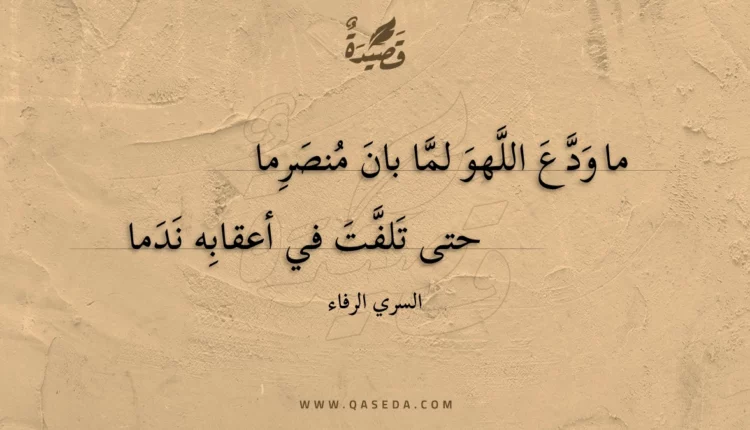 قَصِيدَةٌ
ما وَدَّعَ اللَّهوَ لمَّا بانَ مُنصَرِما
حتى تَلفَّتَ في أعقابِه نَدَما
السري الرفاء
WWW.QASEDA.COM